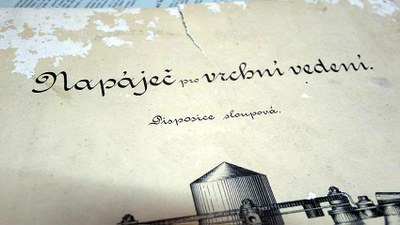 Napáječ pro vrchní vedení.
Disposice sloupová.